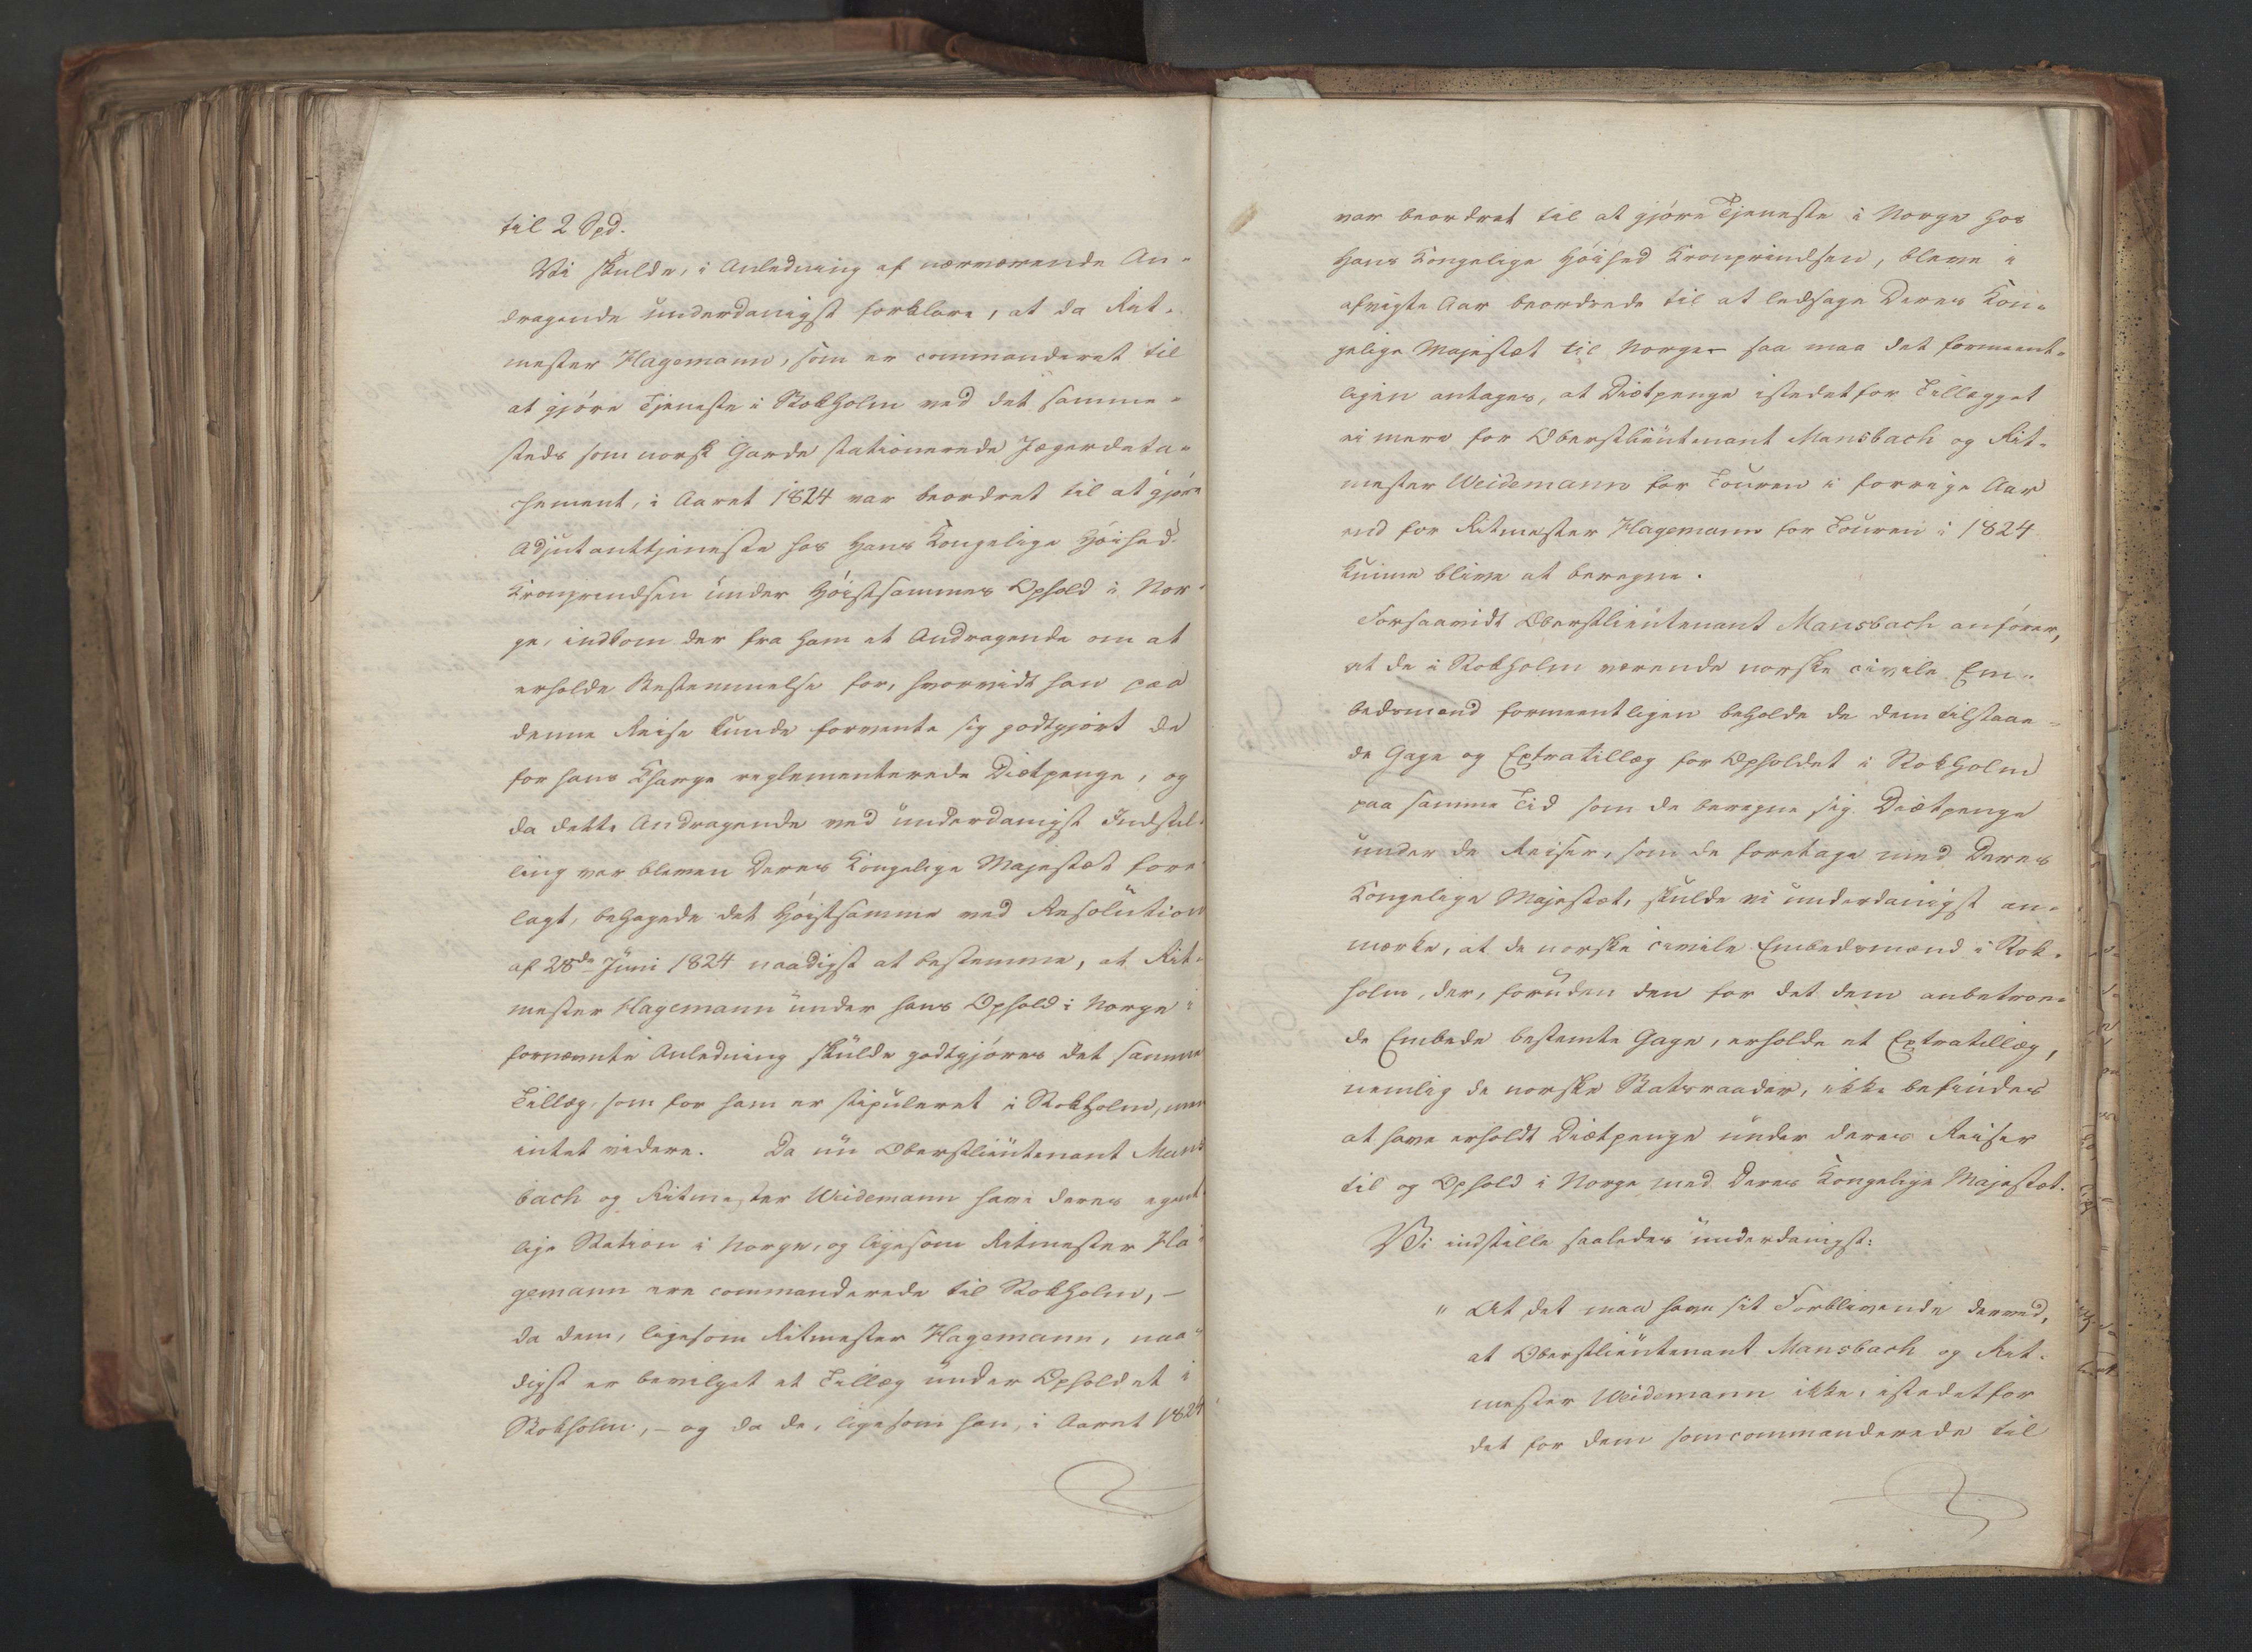 til 2 Spd.
Vi skulde, i Anledning af nærværende An-
dragende underdanigst forklare, at da Rit-
mester Hagemann, som er commanderet til
at gjøre Tjeneste i Stokholm ved det samme-
steds som norsk Garde stationerede Jægerdeta-
chement, i Aaret 1824 var beordret til at gjøre
Adjutanttjeneste hos Hans Kongelige Høihed
Kronprindsen under Høistsammes Ophold i Nor-
ge, indkom der fra ham et Andragende om at
erholde Bestemmelse for, hvorvidt han paa
denne Reise kunde forvente sig godtgjort de
for hans Charge reglementerede Diætpenge, og
da dette Andragende ved underdanigst Indstil-
ling var bleven Deres Kongelige Majestæt fore-
lagt, behagede det Høistsamme ved Resolution
af 28de Juni 1824 naadigst at bestemme, at Rit-
mester Hagemann under hans Ophold i Norge i
fornævnte Anledning skulde godtgjøres det samme
Tillæg, som for ham er stipuleret i Stokholm, men
intet videre. Da nu Oberstlieutenant Mans-
bach og Ritmester Weidemann have deres egent-
lige Station i Norge, og ligesom Ritmester Ha-
gemann ere commanderede til Stokholm, –
da dem, ligesom Ritmester Hagemann, naa-
digst er bevilget et Tillæg under Opholdet i
Stokholm, – og da de, ligesom han, i Aaret 1824
var beordret til at gjøre Tjeneste i Norge hos
Hans Kongelige Høihed Kronprindsen, bleve i
afvigte Aar beordrede til at ledsage Deres Kon-
gelige Majestæt til Norge – saa maa det formeent-
ligen antages, at Diætpenge istedetfor Tillægget
ei mere for Oberstlieutenant Mansbach og Rit-
mester Weidemann for Touren i forrige Aar
end for Ritmester Hagemann for Touren i 1824
kunne blive at beregne.
Forsaavidt Oberstlieutenant Mansbach anfører,
at de i Stokholm værende norske civile Em-
bedsmænd formeentligen beholde de dem tilstaae-
de Gage og Extratillæg for Opholdet i Stokholm
paa samme Tid som de beregne sig Diætpenge
under de Reiser, som de foretage med Deres
Kongelige Majestæt, skulde vi underdanigst an-
mærke, at de norske civile Embedsmænd i Stok-
holm, der, foruden den for det dem anbetroe-
de Embede bestemte Gage, erholde et Extratillæg,
nemlig de norske Statsraader, ikke befindes
at have erholdt Diætpenge under deres Reiser
til og Ophold i Norge med Deres Kongelige Majestæt.
Vi indstille saaledes underdanigst:
" At det maa have sit Forblivende derved,
at Oberstlieutenant Mansbach og Rit-
mester Weidemann ikke, istedetfor
det for dem som commanderede til